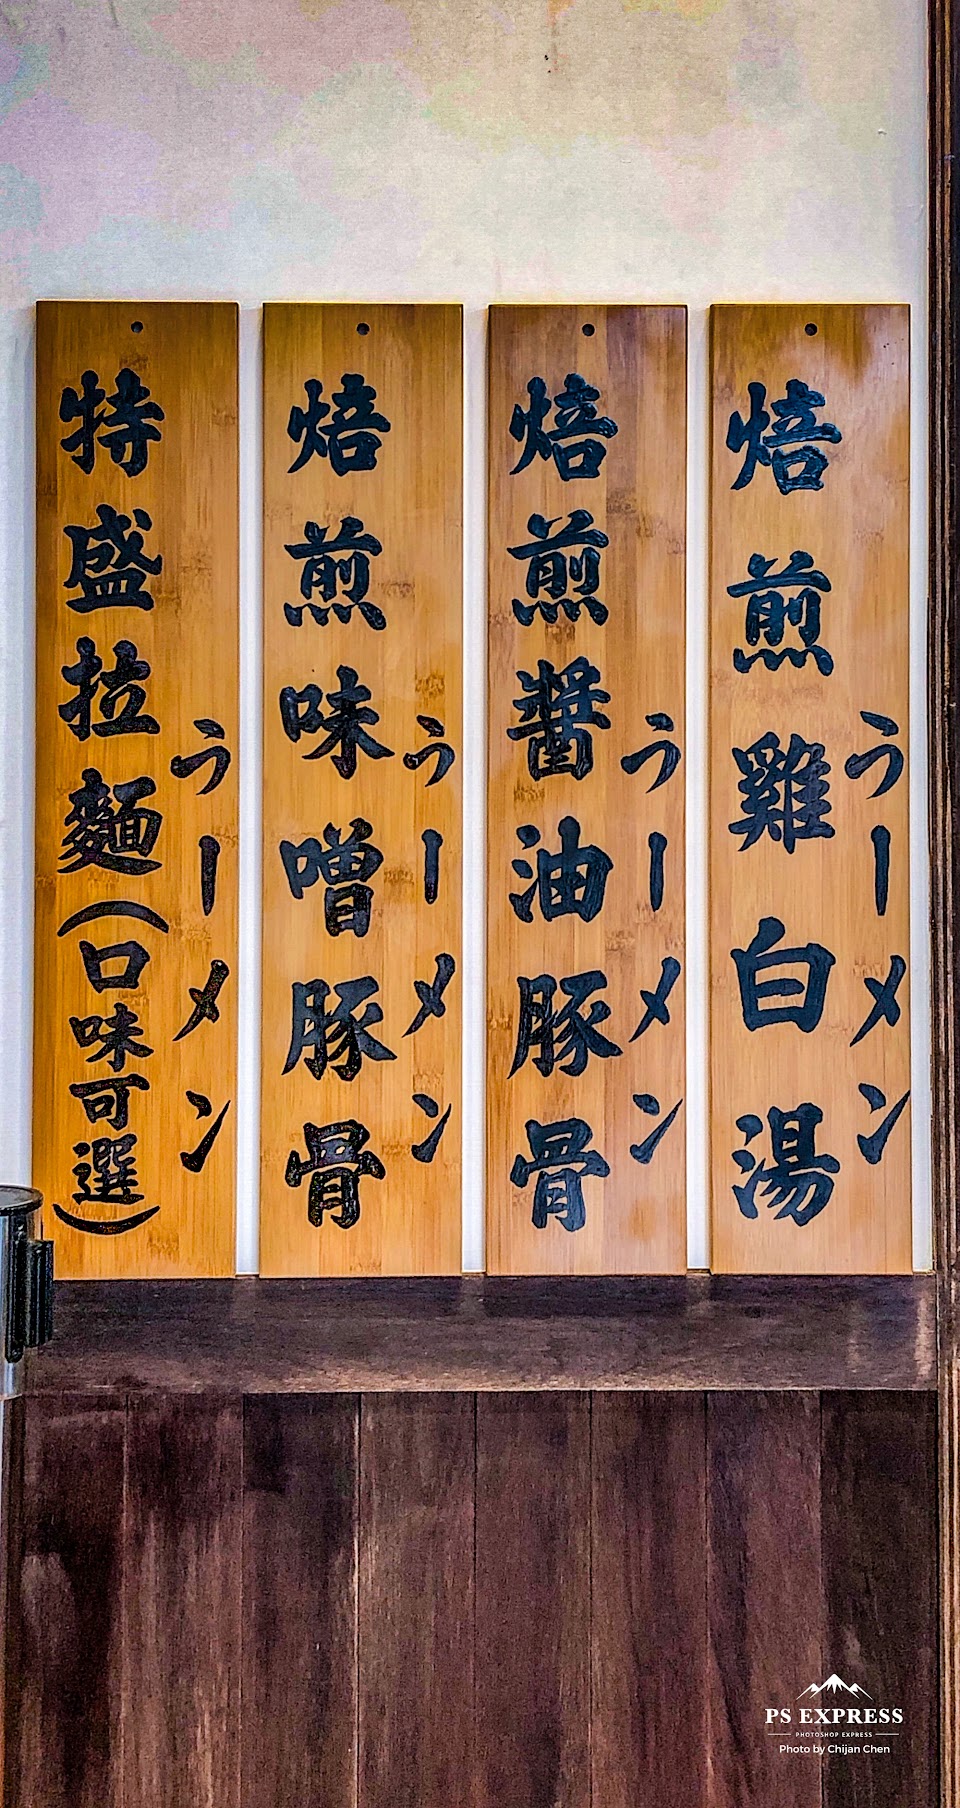 焙煎雞白湯
うーメン
焙煎醬油豚骨
うーメン
焙煎味噌豚骨
うーメン
特盛拉麵(口味可選)
うーメン
PS EXPRESS
PHOTOSHOP EXPRESS
Photo by Chijan Chen